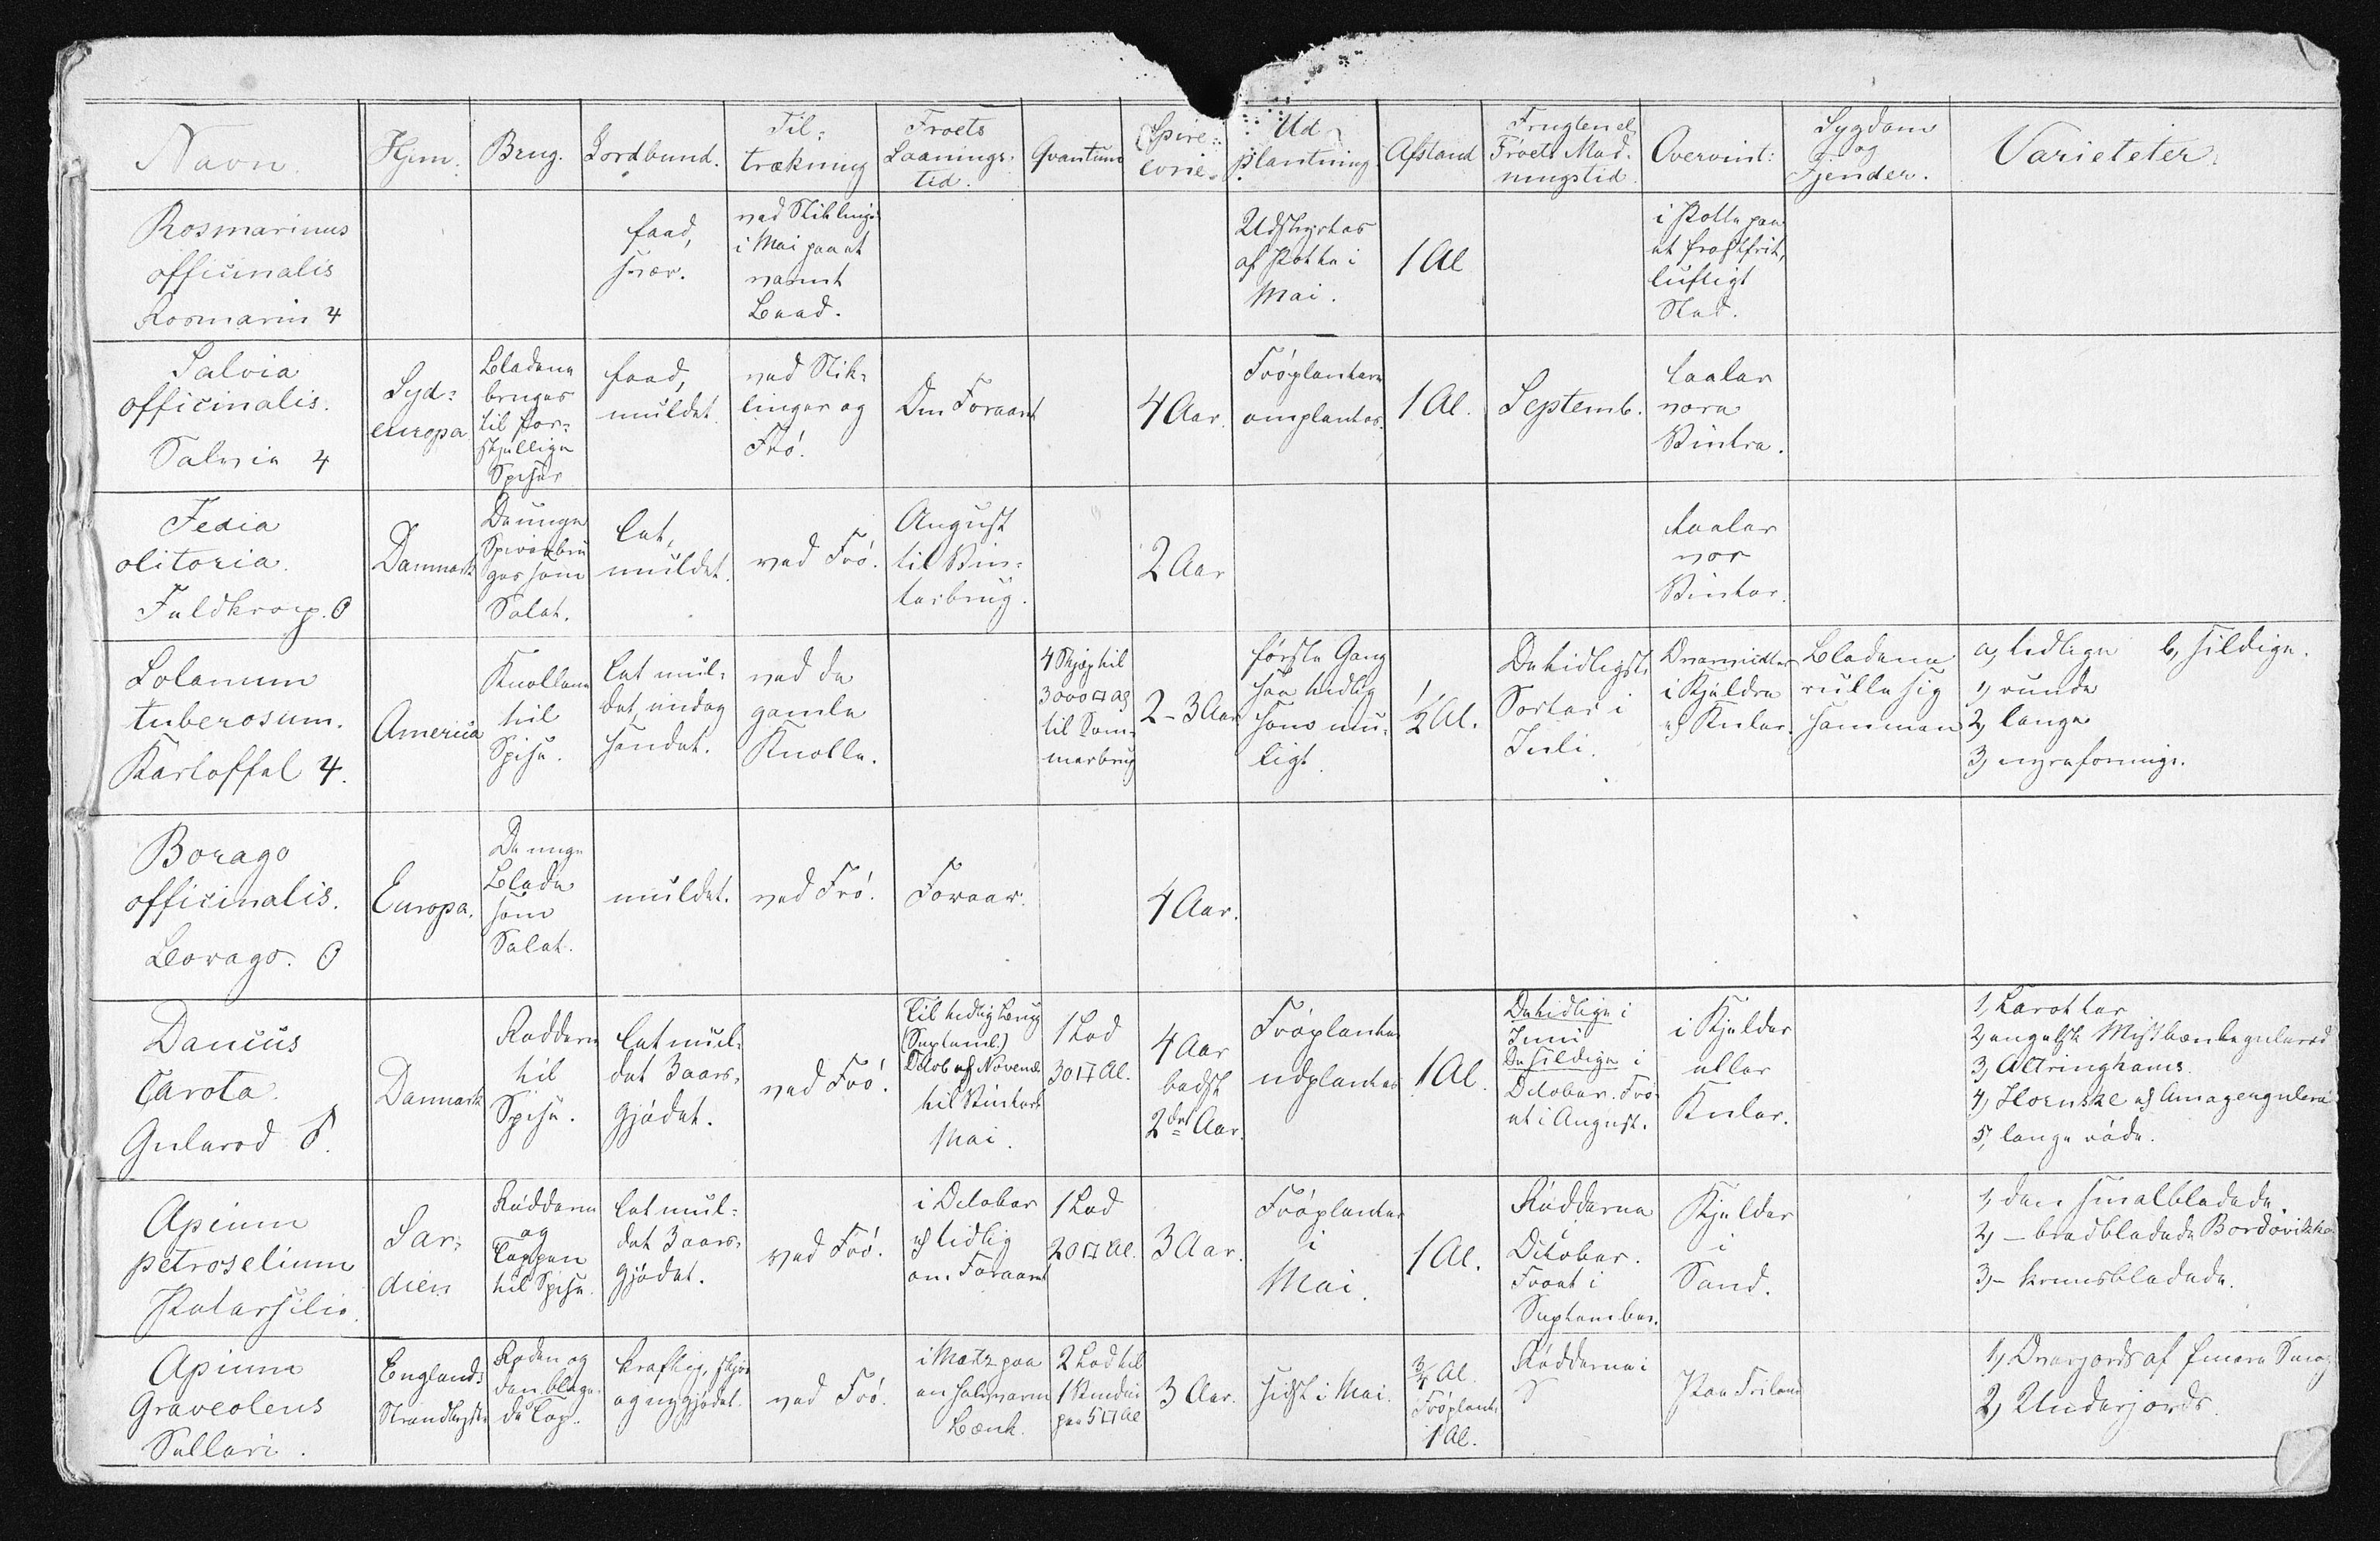 Navn
Hjem.
Brug.
Jordbund.
Til-
trækning
Froets
Saanings-
tid.
Qvantum
Spire-
evne.
Ud
plantning
Afstand
Frugten el
Froets Mod-
ningstid
Overvint:
Sygdom
og
Fjender.
Varieteter
Rosmarinus
officinalis
Rosmarin 4
faad,
svær.
ved Stikling
i Mai paa et
varmt
Beed.
Udstyrtes
af Potte i
Mai.
1 Al
i Potte paa
et frostfrit,
luftigt
Sted.
Salvia
officinalis.
Salvie 4
Syd-
europa
Bladene
bruges
til for-
skjellige
Spiser
feed,
muldet
ved Stik-
linger og
Frø.
Om Foraaret
4 Aar.
Frøplanterne
omplantes.
1 Al.
Septemb.
taaler
vore
Vintre.
Fedia
olitoria.
Feldkrop. O
Danmark
De unge
Spirer bru
ges som
Salat.
let,
muldet.
ved Frø.
August
til Vin-
terbrug.
2 Aar
taaler
vor
Vinter.
Solanum
tuberosum.
Kartoffel 4.
America
Knollene
til
Spise.
let mul-
det, endog
sandet.
ved de
gamle
Knolle.
4 Skjæp til
3000 □ Al
til Som-
merbrug
2-3 Aar
første Gang
saa tidlig
som mu-
ligt.
1/2 Al.
De tidligste
Sorter i
Juli.
Overvintres
i Kjeldre
el Kuler.
Bladene
rulle sig
sammen
a, tidlige b, sildige.
1, runde
2, lange
3, nyreformige.
Borago
officinalis.
Borago. O
Europa.
De unge
Blade
som
Salat.
muldet.
ved Frø.
Foraar.
4 Aar.
Daucus
Carota.
Gulerod ♂.
Danmark
Rødderne
til
Spise.
let mul-
det 3 aars-
gjødet.
ved Frø.
Til tidlig Brug
(Septemb.)
Octob el Novemb.
til Vinterb
Mai.
1 Lod
30 □ Al.
4 Aar
bedst
2det Aar.
Frøplanter
udplantes
1 Al.
De tidlige i
Juni
De sildige i
October. Frø-
et i August.
i Kjelder
eller
Kuler.
1, Karotter
2, engelsk Mistbænkegulerod
3, Altringhams.
4, Hornske el Amagergulerod
5, lange røde.
Apium
petroselium
Petersilie.
Sar-
dien
Rødderne
og
Toppen
til Spise.
let mul-
det 3 aars-
gjødet.
ved Frø.
i October
el tidlig
om Foraaret
1 Lod
20 □ Al.
3 Aar.
Frøplanter
i
Mai.
1 Al.
Rødderne
i
October.
Frøet i
September.
Kjelder
i
Sand.
1, den smalbladede
2, - bredbladede Bordovikke
3, - krusbladede.
Apium
Graveolens
Selleri.
Englands
Strandkyster
Roden og
den blege-
de Top.
kraftig, skjør
og nygjødet.
ved Frø.
i Marts paa
en halvvarm
Bænk.
2 Lod til
1 Vindue
paa 5 □ Al
3 Aar.
sidst i Mai.
3/4 Al.
Frøplant:
1 Al.
Rødderne i
S
Paa Friland
1, Overjords af finere Smag
2, Underjords.